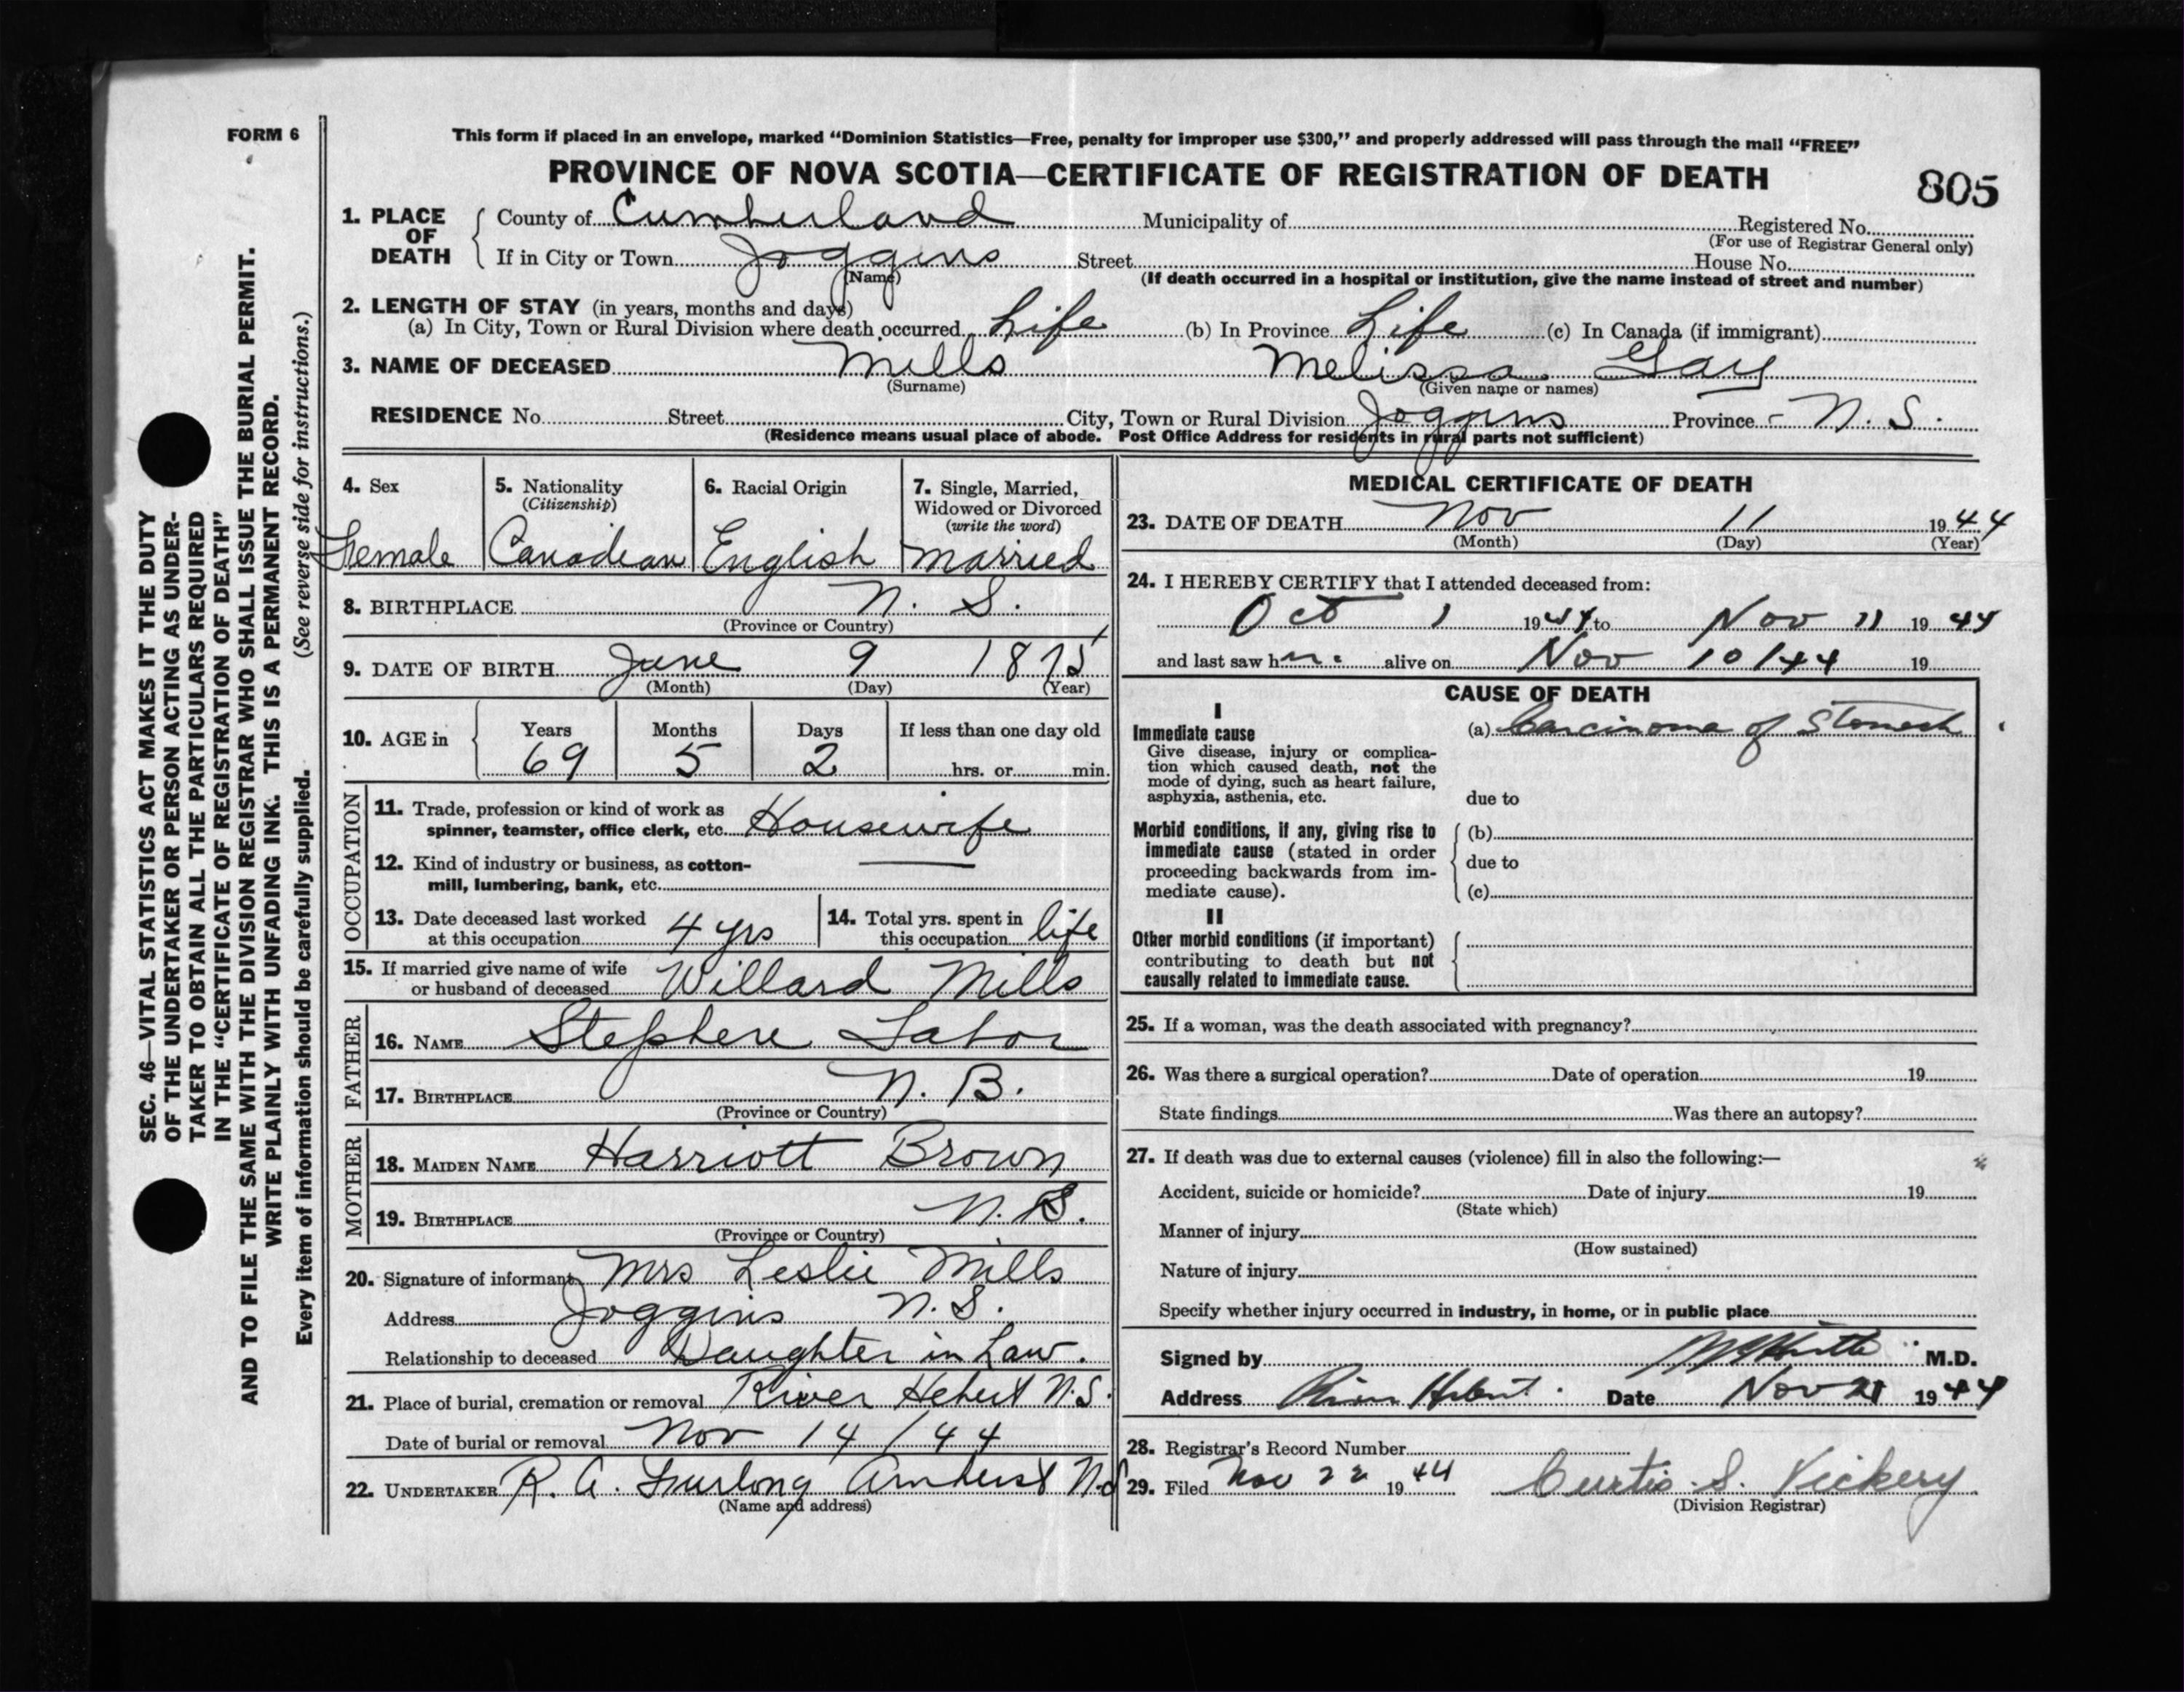 FORM 6
This form if placed in an envelope, marked “Dominion Statistics—Free, penalty for improper use $300,” and properly addressed will pass through the mail “FREE”
PROVINCE OF NOVA SCOTIA—CERTIFICATE OF REGISTRATION OF DEATH
805
1. PLACE OF DEATH
County of Cumberland Municipality of Registered No.
(For use of Registrar General only)
If in City or Town Joggins Street House No.
(Name) (If death occurred in a hospital or institution, give the name instead of street and number)
2. LENGTH OF STAY (in years, months and days)
(a) In City, Town or Rural Division where death occurred Life (b) In Province Life (c) In Canada (if immigrant)
3. NAME OF DECEASED Mills Melissa Gay
(Surname) (Given name or names)
RESIDENCE No. Street City, Town or Rural Division Joggins Province N. S.
(Residence means usual place of abode. Post Office Address for residents in rural parts not sufficient)
4. Sex
Female
5. Nationality
(Citizenship)
Canadian
6. Racial Origin
English
7. Single, Married,
Widowed or Divorced
(write the word)
Married
8. BIRTHPLACE N. S.
(Province or Country)
9. DATE OF BIRTH June 9 1875
(Month) (Day) (Year)
10. AGE in
Years Months Days If less than one day old
69 5 2 hrs. or min.
OCCUPATION
11. Trade, profession or kind of work as
spinner, teamster, office clerk, etc. Housewife
12. Kind of industry or business, as cotton-
mill, lumbering, bank, etc.
13. Date deceased last worked
at this occupation 4 yrs
14. Total yrs. spent in
this occupation life
15. If married give name of wife
or husband of deceased Willard Mills
FATHER
16. NAME Stephen
17. BIRTHPLACE N. B.
(Province or Country)
MOTHER
18. MAIDEN NAME Harriott Brown
19. BIRTHPLACE N. S.
(Province or Country)
20. Signature of informant Mrs Leslie Mills
Address Joggins N. S.
Relationship to deceased Daughter in Law.
21. Place of burial, cremation or removal River Hebert N.S.
Date of burial or removal Nov 14 / 44
22. UNDERTAKER R. A. Furlong Amherst N.S
(Name and address)
MEDICAL CERTIFICATE OF DEATH
23. DATE OF DEATH Nov 11 1944
(Month) (Day) (Year)
24. I HEREBY CERTIFY that I attended deceased from:
Oct 1 1944 to Nov 11 1944
and last saw her alive on Nov 10/44 19
CAUSE OF DEATH
I
Immediate cause
Give disease, injury or complica-
tion which caused death, not the
mode of dying, such as heart failure,
asphyxia, asthenia, etc.
(a) Carcinoma of Stomach
due to
Morbid conditions, if any, giving rise to
immediate cause (stated in order
proceeding backwards from im-
mediate cause).
(b)
due to
(c)
II
Other morbid conditions (if important)
contributing to death but not
causally related to immediate cause.
25. If a woman, was the death associated with pregnancy?
26. Was there a surgical operation? Date of operation 19
State findings Was there an autopsy?
27. If death was due to external causes (violence) fill in also the following:—
Accident, suicide or homicide? Date of injury 19
(State which)
Manner of injury
(How sustained)
Nature of injury
Specify whether injury occurred in industry, in home, or in public place
Signed by M.D.
Address River Hebert. Date Nov 21 1944
28. Registrar's Record Number
29. Filed Nov 22 1944 Curtis S. Vickery
(Division Registrar)
SEC. 46—VITAL STATISTICS ACT MAKES IT THE DUTY
OF THE UNDERTAKER OR PERSON ACTING AS UNDER-
TAKER TO OBTAIN ALL THE PARTICULARS REQUIRED
IN THE “CERTIFICATE OF REGISTRATION OF DEATH”
AND TO FILE THE SAME WITH THE DIVISION REGISTRAR WHO SHALL ISSUE THE BURIAL PERMIT.
WRITE PLAINLY WITH UNFADING INK. THIS IS A PERMANENT RECORD.
Every item of information should be carefully supplied. (See reverse side for instructions.)